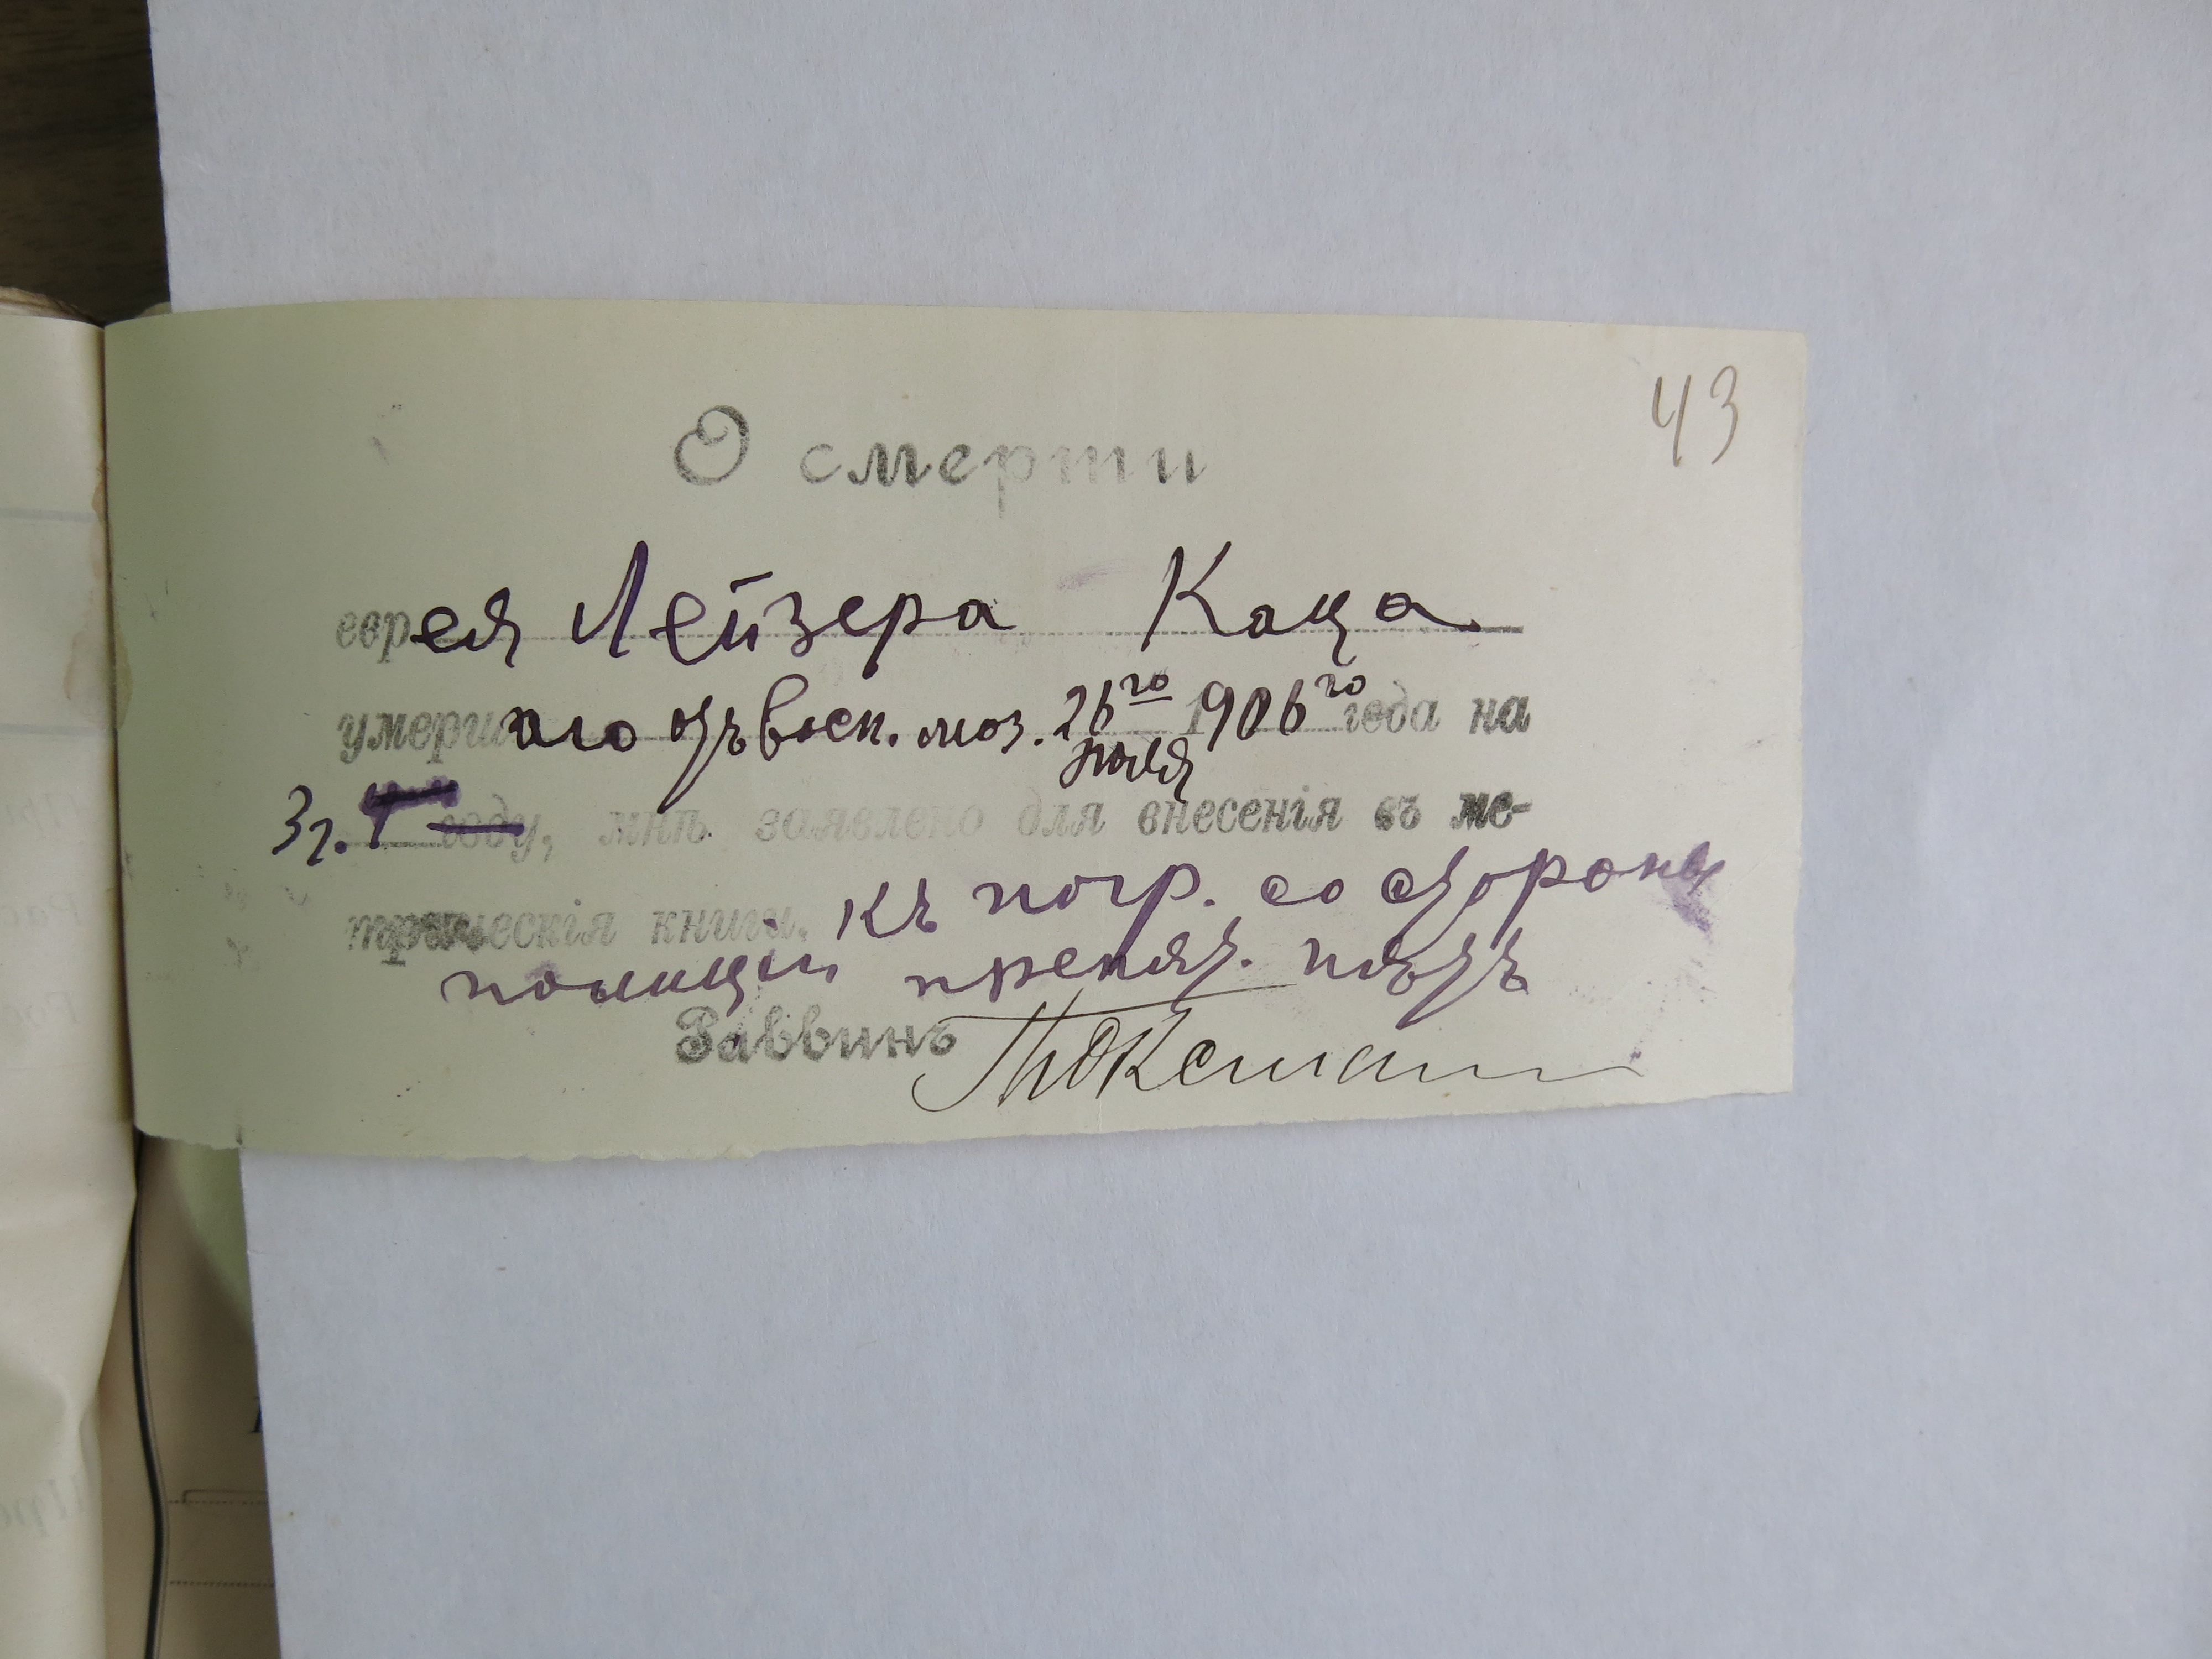 43
О смерти
еврея Лейзера Каца
умершаго отъ восп. моз. 26го 1906го года на
июля
3 г. году, мнѣ заявлено для внесенія въ ме-
трическія книги. Къ погр. со стороны
полиціи препят. нѣтъ
Раввинъ